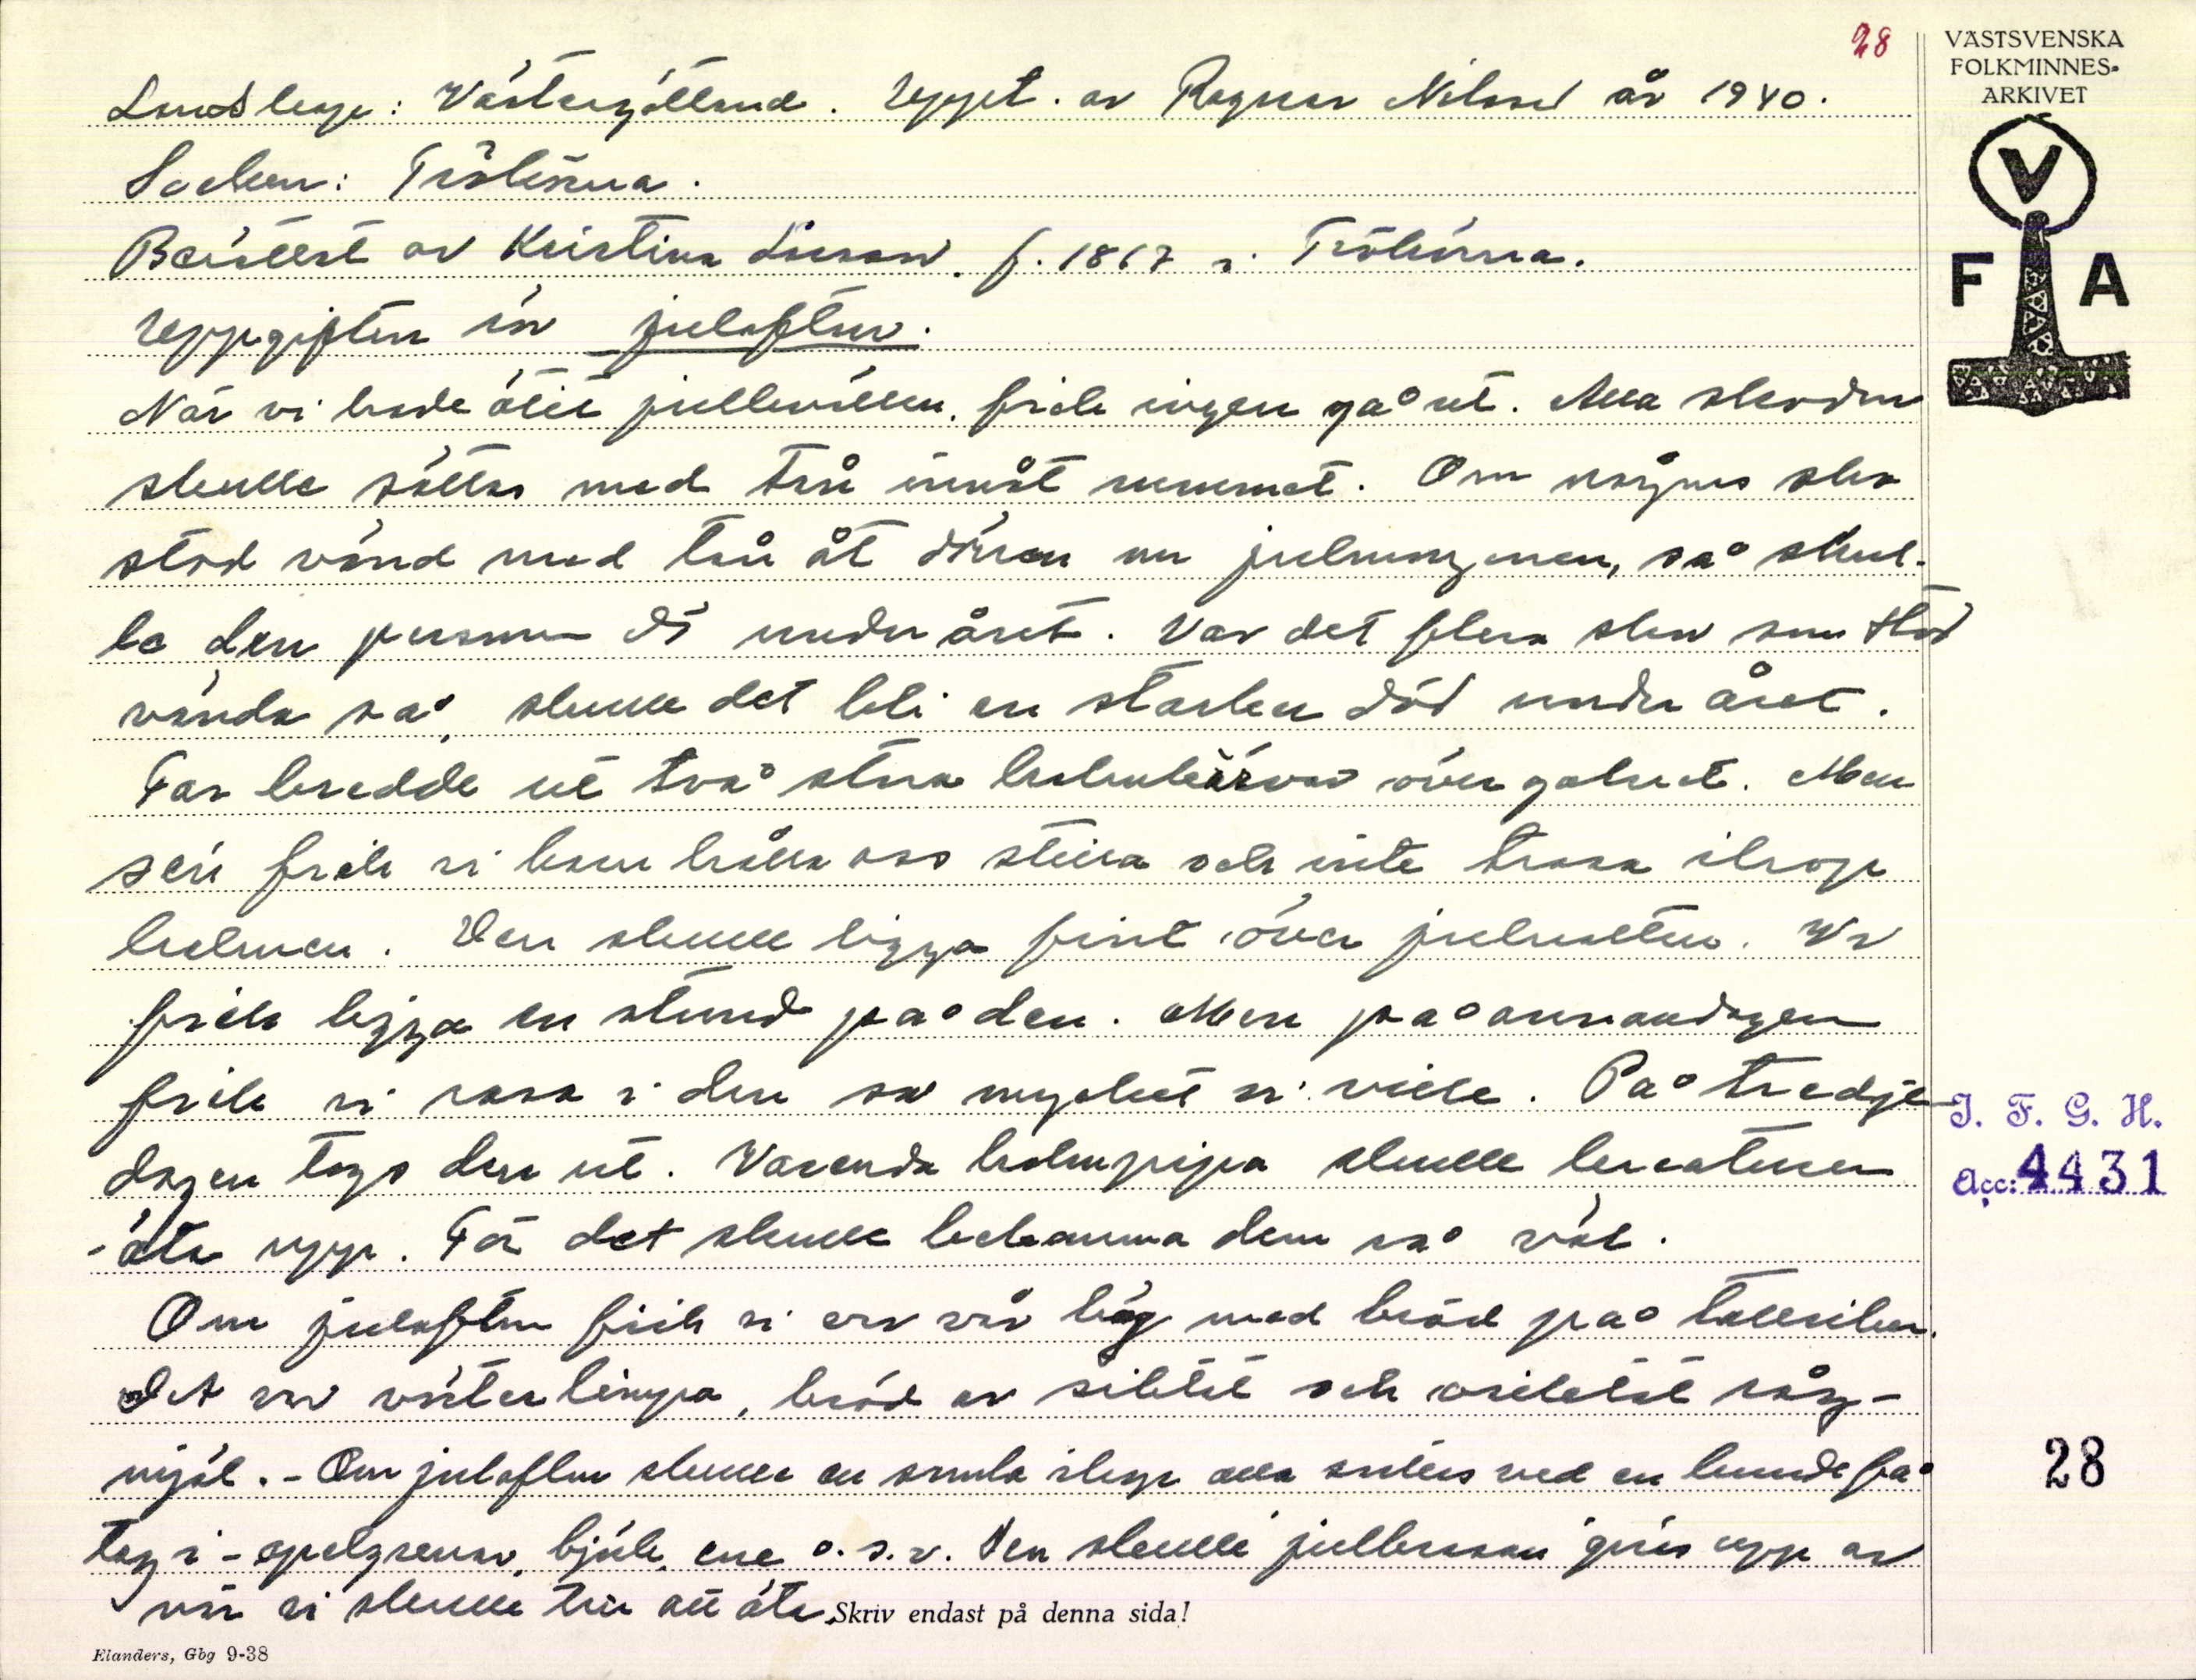 28
VÄSTSVENSKA
FOLKMINNES-
ARKIVET
V
F A
Landskap: Västergötland. Uppt. av Ragnar Nilsson år 1940.
Socken: Trökörna.
Berättat av Kristina Larsson. f. 1867 i Trökörna.
Uppgiften är julafton.
När vi hade ätit julkvällen, fick ingen gå ut. Alla skodon
skulle sättas med tån inåt rummet. Om någons sko
stod vänd med tån åt dörren om julmorgonen, så skul-
le den personen dö under året. Var det flera skor som stod
vända så, skulle det bli en starker död under året.
Far bredde ut två stora halmkärvar över golvet. Men
sen fick vi barn hålla oss stilla och inte trassa ihop
halmen. Den skulle ligga fint över julnatten. Vi
fick ligga en stund på den. Men på annandagen
fick vi rasa i den så mycket vi ville. På tredje
dagen togs den ut. Varenda halmpipa skulle kreaturen
äta upp. För det skulle bekomma dem så väl.
Om julafton fick vi var sin hög med bröd på tallriken.
Det var vörterlimpa, bröd av siktat och osiktat råg-
mjöl. - Om julafton skulle en samla ihop alla sorters ved en kunde få
tag i - apelgrenar, björk, ene o.s.v. Den skulle julbrasan göras upp av
när vi skulle till att äta.
Skriv endast på denna sida!
Elanders, Gbg 9-38
I. F. G. H.
Acc: 4431
28